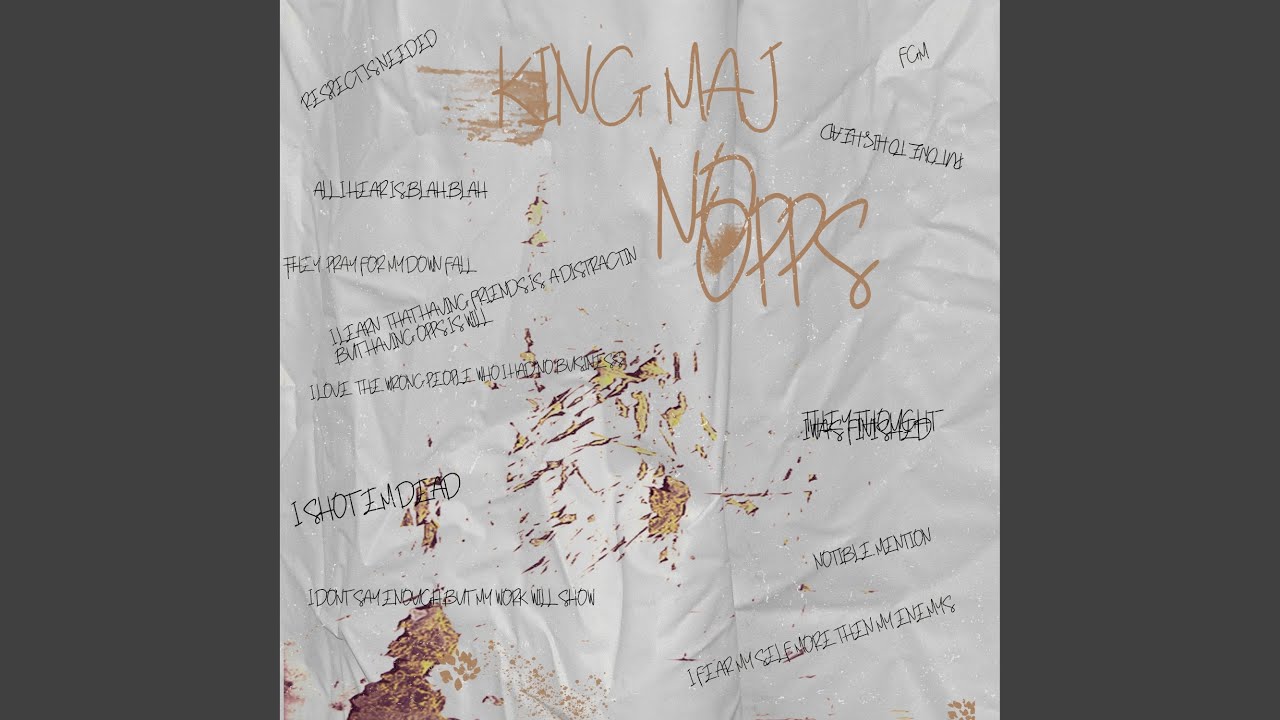 RESPECT IS NEEDED
KING MAJ
FGM
PUT ONE TO HIS HEAD
ALL I HEAR IS BLAH BLAH
NO
OPPS
THEY PRAY FOR MY DOWN FALL
I LEARN THAT HAVING FRIENDS IS A DISTRACTIN
BUT HAVING OPPS IS WILL
I LOVE THE WRONG PEOPLE WHO I HAD NO BUSINESS
THEY THOUGHT
I WAS FINISHED
I SHOT EM DEAD
NOTIBLE MENTION
I DONT SAY ENOUGH BUT MY WORK WILL SHOW
I FEAR MY SELF MORE THEN MY ENEMYS